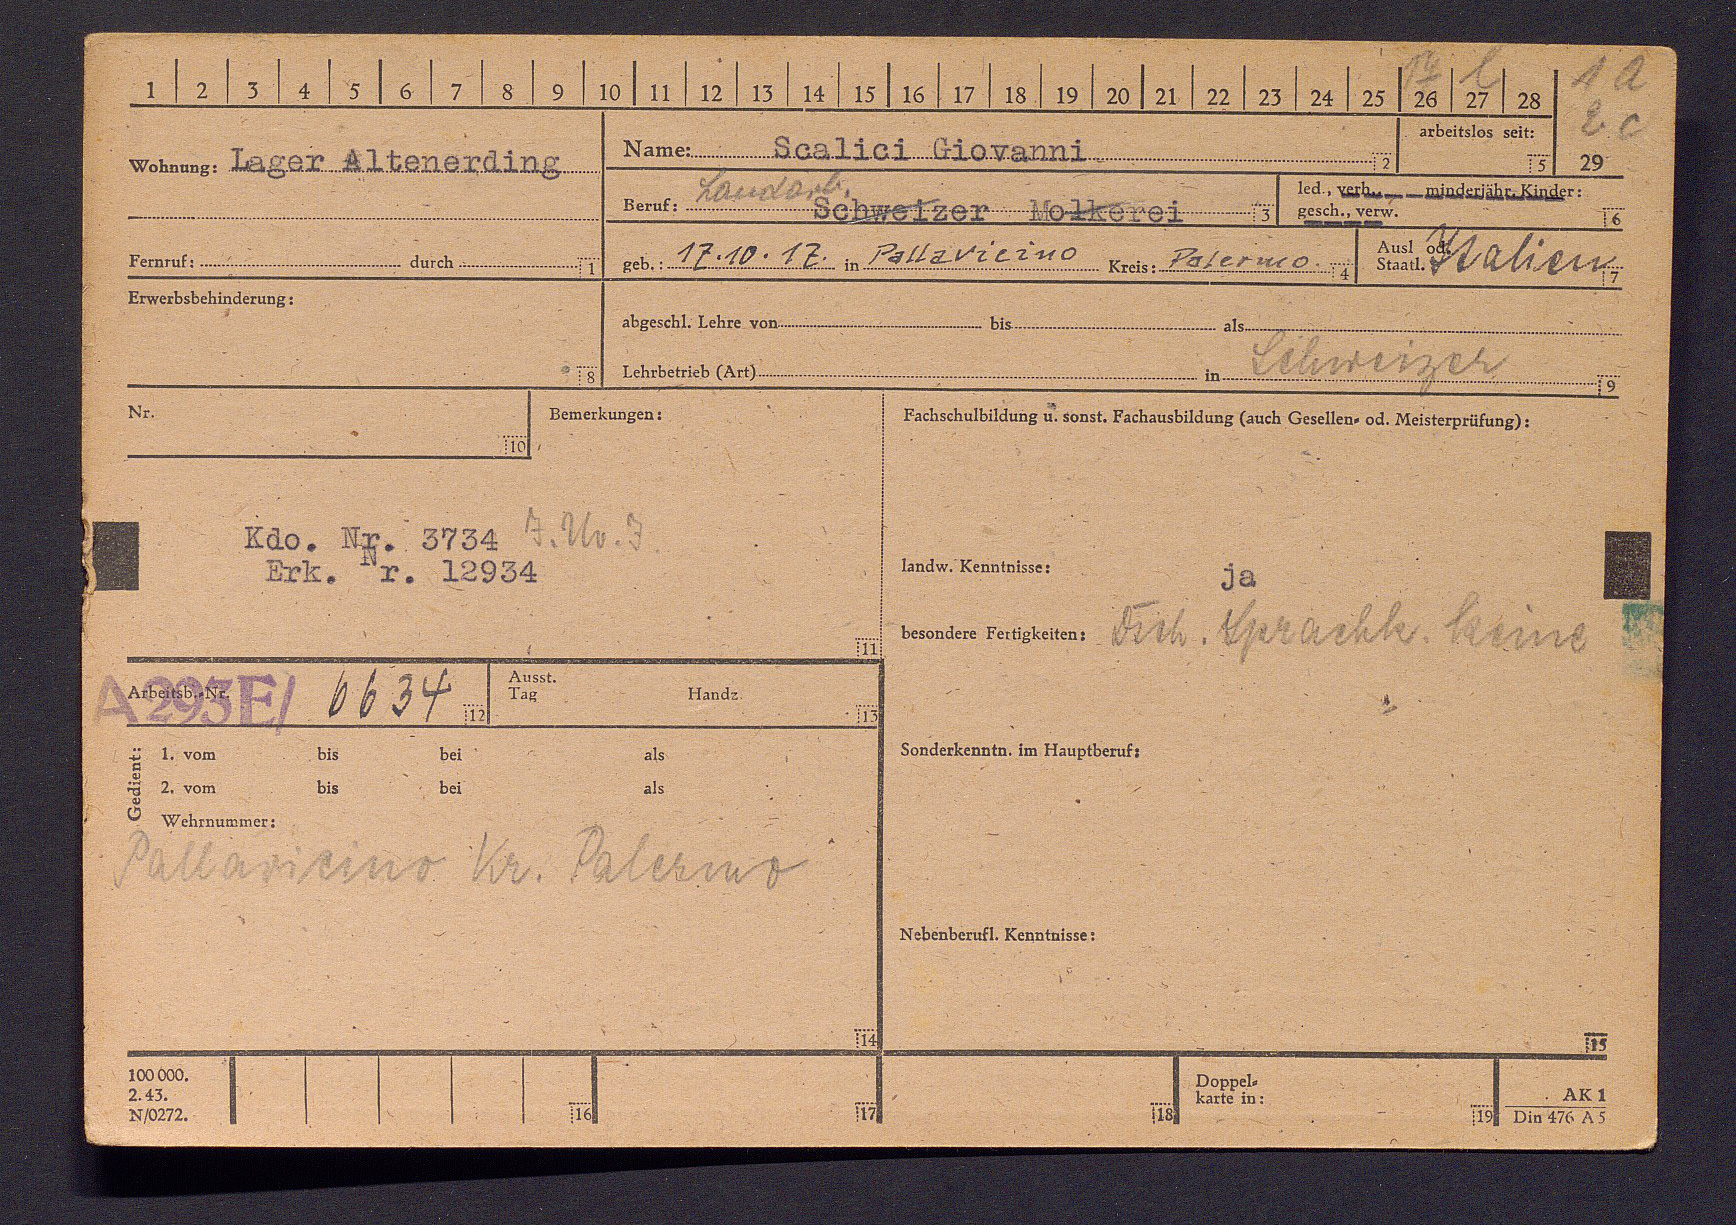 1 2 3 4 5 6 7 8 9 10 11 12 13 14 15 16 17 18 19 20 21 22 23 24 25 26 27 28
1 a
2 c
29
Wohnung: Lager Altenerding
Name: Scalici Giovanni 2
arbeitslos seit: 5
Landarb.
Beruf: Schweizer Molkerei 3
led., verh., minderjähr. Kinder:
gesch., verw. 6
Fernruf: durch 1
geb.: 17.10.17. in Pallavicino Kreis: Palermo. 4
Ausl od.
Staatl. Italien 7
Erwerbsbehinderung:
8
abgeschl. Lehre von bis als
Lehrbetrieb (Art) in Schweizer 9
Nr.
10
Bemerkungen:
Kdo. Nr. 3734
Erk. Nr. 12934
11
Fachschulbildung u. sonst. Fachausbildung (auch Gesellen- od. Meisterprüfung):
landw. Kenntnisse: ja
besondere Fertigkeiten: Dtsch. Sprachk. keine
Sonderkenntn. im Hauptberuf:
Nebenberufl. Kenntnisse:
15
Arbeitsb.-Nr. A 293E/ 6634 12
Ausst.
Tag Handz. 13
Gedient:
1. vom bis bei als
2. vom bis bei als
Wehrnummer:
Pallavicino Kr. Palermo
14
100 000.
2. 43.
N/0272.
16
17
18
Doppel-
karte in: 19
AK 1
Din 476 A 5